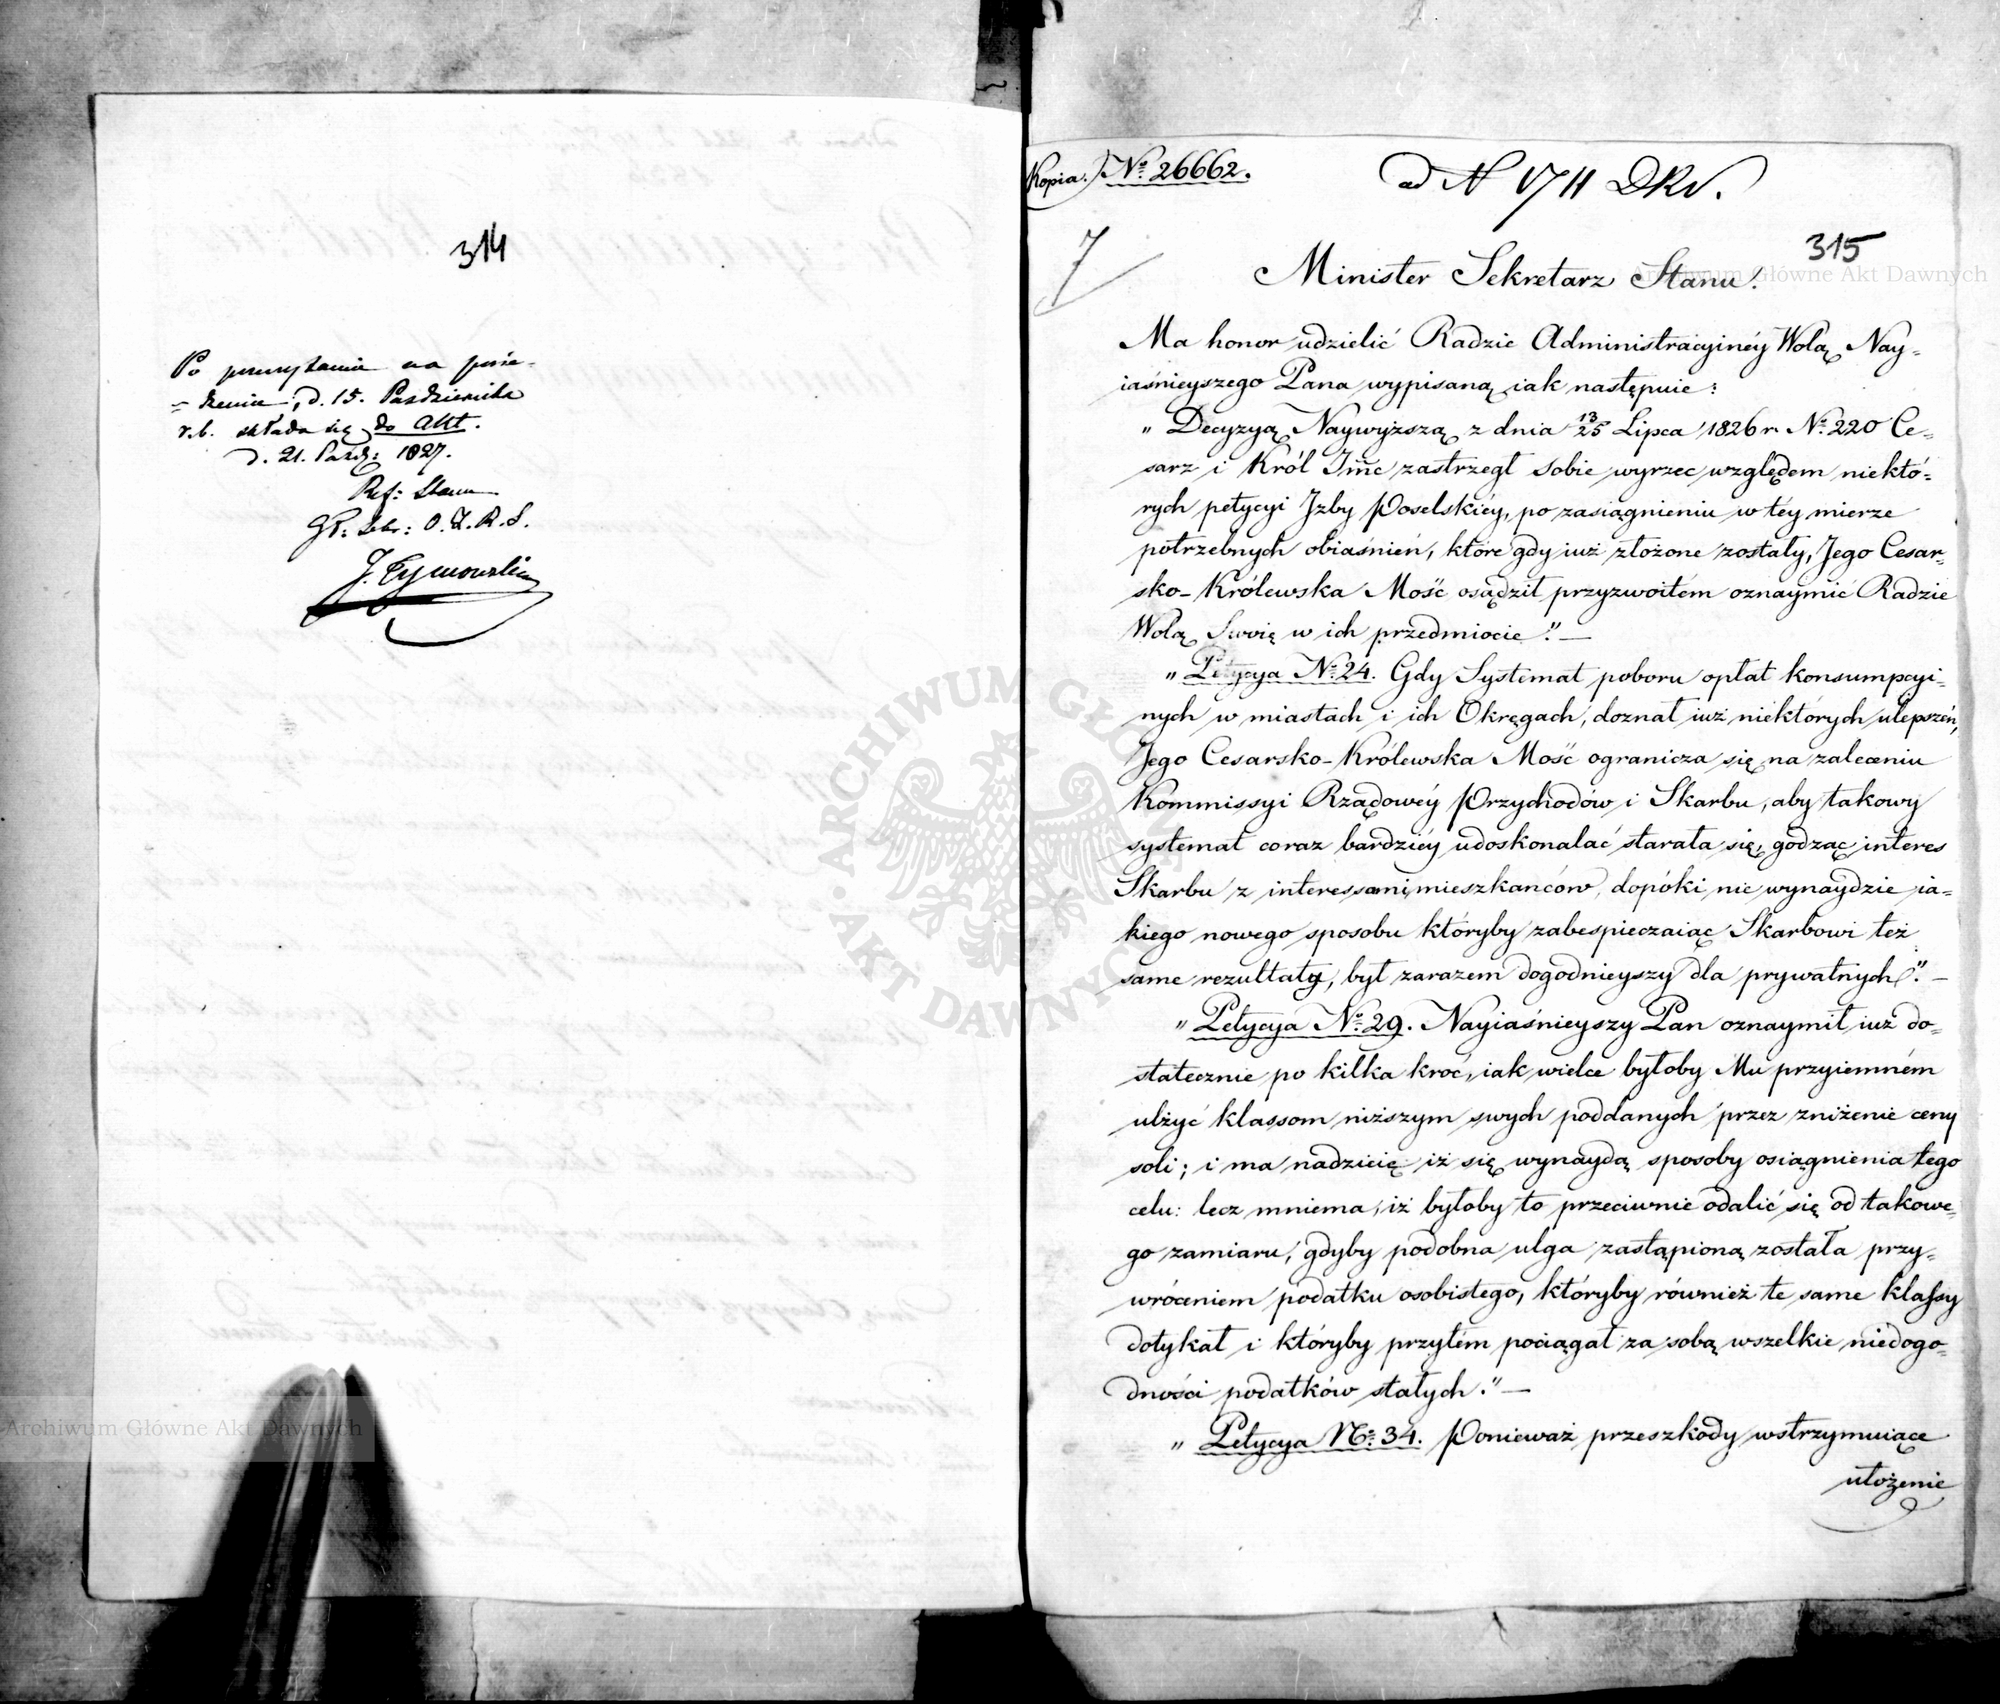 314
Po przeczytaniu na posie-
-dzeniu, d. 15. Października
r.b. składa się do Akt.
d. 21. Paźdz: 1827.
Ref: Stanu
J. Tymowski
Kopia. No. 26662.
ad N 1711 DKN.
7
315
Minister Sekretarz Stanu.
Ma honor udzielić Radzie Administracyinéy Wolą Nay-
iaśnieyszego Pana wypisaną iak następuie:
„Decyzyą Naywyższą z dnia 13/25 Lipca 1826 r. No. 220 Ce-
sarz i Król Jmc zastrzegł sobie wyrzec względem niektó-
rych petycyi Izby Poselskiéy, po zasiągnieniu w téy mierze
potrzebnych obiaśnień, które gdy iuż złożone zostały, Jego Cesar-
sko-Królewska Mość osądził przyzwoitém oznaymić Radzie
Wolą Swoię w ich przedmiocie." —
„Petycya No. 24. Gdy Systemat poboru opłat konsumpcyi-
nych w miastach i ich Okręgach, doznał iuż niektórych ulepszeń,
Jego Cesarsko-Królewska Mość ogranicza się na zaleceniu
Kommissyi Rządowéy Przychodów i Skarbu, aby takowy
systemat coraz bardziéy udoskonalać starała się, godząc interes
Skarbu z interessami mieszkańców, dopóki nie wynaydzie ia-
kiego nowego sposobu któryby zabespieczaiąc Skarbowi też
same rezultaty, był zarazem dogodnieyszy dla prywatnych." —
„Petycya No. 29. Nayiaśnieyszy Pan oznaymił iuż do-
statecznie po kilka kroć, iak wielce byłoby Mu przyiemném
ulżyć klassom niższym swych poddanych przez zniżenie ceny
soli; i ma nadzieię iż się wynaydą sposoby osiągnienia tego
celu: lecz mniema, iż byłoby to przeciwnie odalić się od takowe-
go zamiaru, gdyby podobna ulga zastąpioną została przy-
wróceniem podatku osobistego, któryby również te same klassy
dotykał i któryby przytém pociągał za sobą wszelkie niedogo-
dności podatków stałych." —
„Petycya No. 34. Ponieważ przeszkody wstrzymuiące
ułożenie
Archiwum Główne Akt Dawnych
ARCHIWUM GŁÓWNE AKT DAWNYCH
Archiwum Główne Akt Dawnych